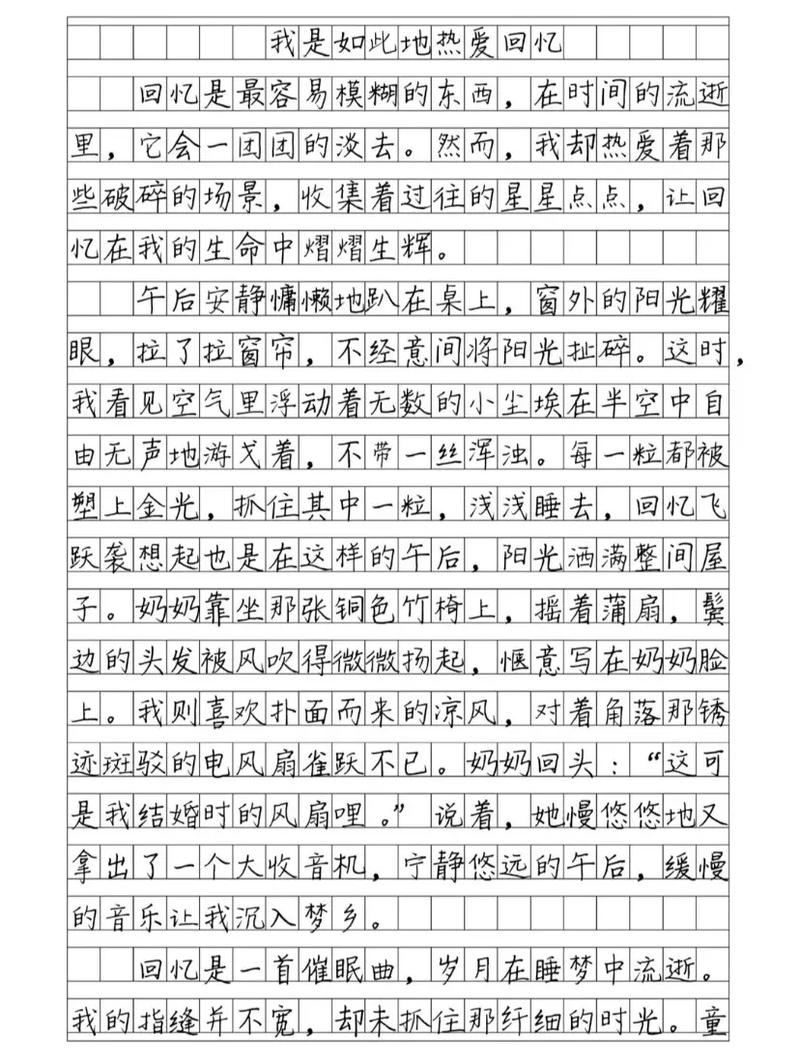 我是如此地热爱回忆
回忆是最容易模糊的东西，在时间的流逝
里，它会一团团的淡去。然而，我却热爱着那
些破碎的场景，收集着过往的星星点点，让回
忆在我的生命中熠熠生辉。
午后安静慵懒地趴在桌上，窗外的阳光耀
眼，拉了拉窗帘，不经意间将阳光扯碎。这时，
我看见空气里浮动着无数的小尘埃在半空中自
由无声地游弋着，不带一丝浑浊。每一粒都被
塑上金光，抓住其中一粒，浅浅睡去，回忆飞
跃袭想起也是在这样的午后，阳光洒满整间屋
子。奶奶靠坐那张铜色竹椅上，摇着蒲扇，鬓
边的头发被风吹得微微扬起，惬意写在奶奶脸
上。我则喜欢扑面而来的凉风，对着角落那锈
迹斑驳的电风扇雀跃不已。奶奶回头：“这可
是我结婚时的风扇哩。”说着，她慢悠悠地又
拿出了一个大收音机，宁静悠远的午后，缓慢
的音乐让我沉入梦乡。
回忆是一首催眠曲，岁月在睡梦中流逝。
我的指缝并不宽，却未抓住那纤细的时光。童